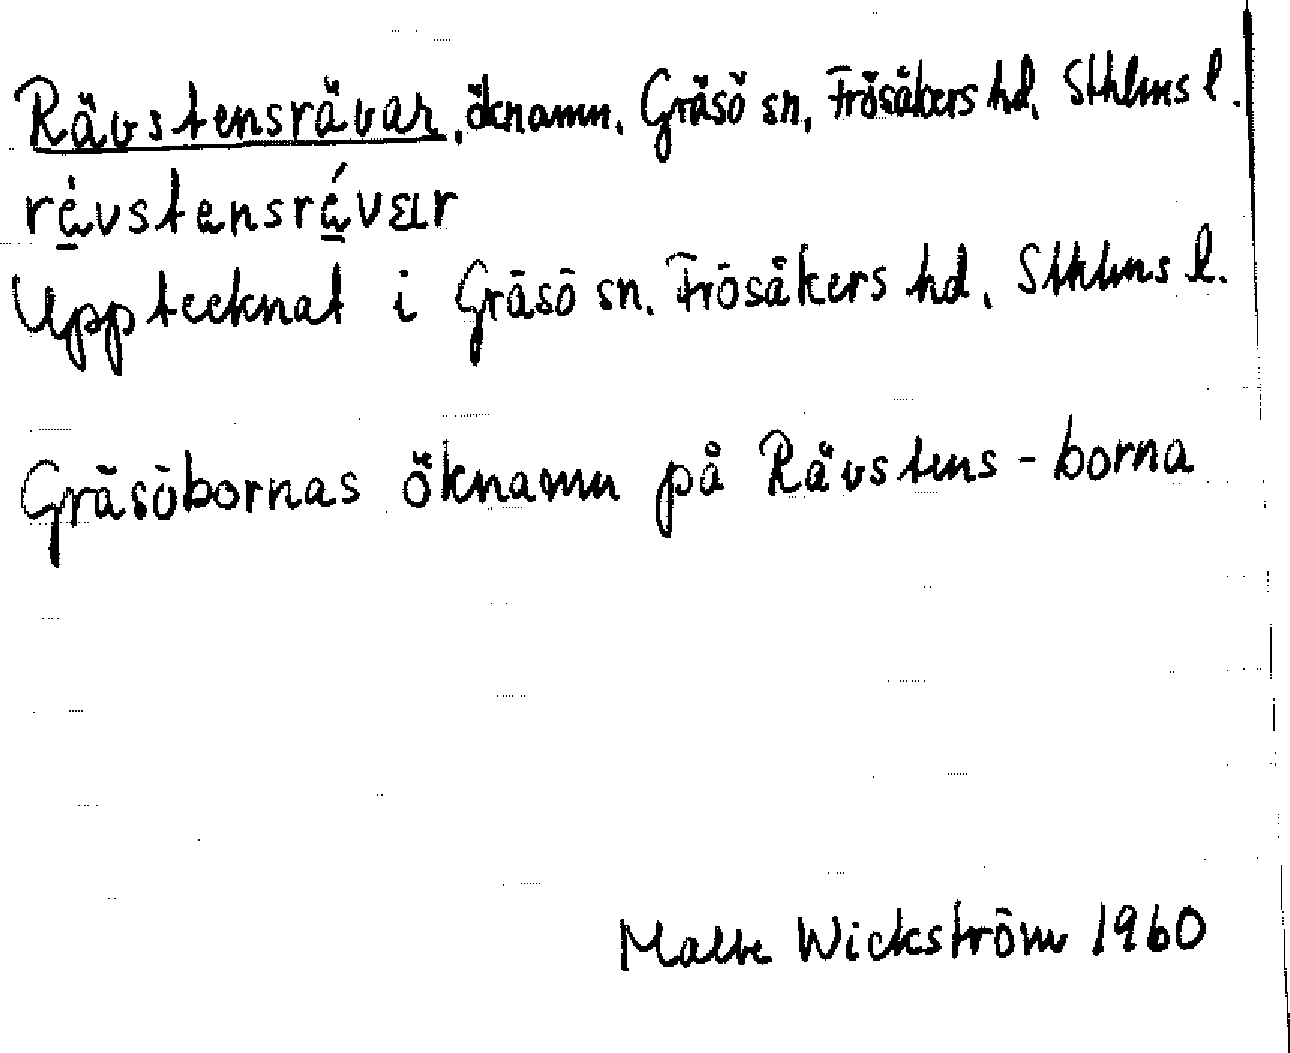 Rävstensrävar, öknamn, Gräsö sn, Frösåkers hd, Sthlms l.
rävstensrävar
Upptecknat i Gräsö sn, Frösåkers hd, Sthlms l.
Gräsöbornas öknamn på Rävstens-borna
Malte Wickström 1960